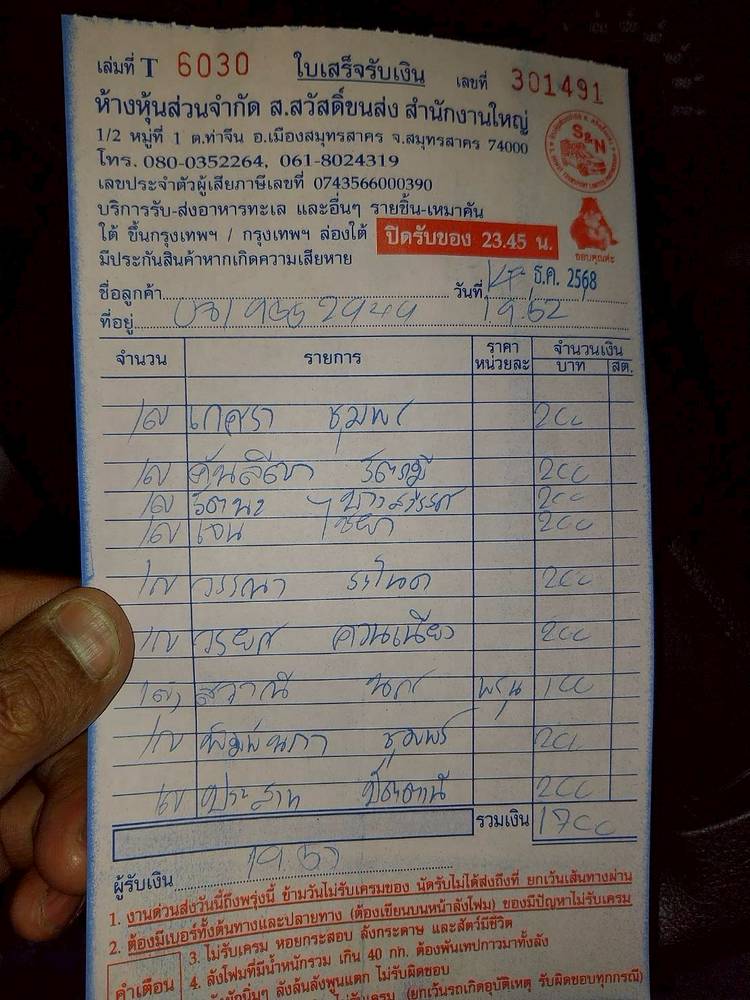 เล่มที่ T 6030 ใบเสร็จรับเงิน เลขที่ 301491
ห้างหุ้นส่วนจำกัด ส.สวัสดิ์ขนส่ง สำนักงานใหญ่
1/2 หมู่ที่ 1 ต.ท่าจีน อ.เมืองสมุทรสาคร จ.สมุทรสาคร 74000
S&N
โทร. 080-0352264, 061-8024319
เลขประจำตัวผู้เสียภาษีเลขที่ 0743566000390
บริการรับ-ส่งอาหารทะเล และอื่นๆ รายชิ้น-เหมาคัน
ใต้ ขึ้นกรุงเทพฯ / กรุงเทพฯ ล่องใต้ ปิดรับของ 23.45 น.
ขอบคุณค่ะ
มีประกันสินค้าหากเกิดความเสียหาย
ชื่อลูกค้า วันที่ ธ.ค. 2568
ที่อยู่ 19.52
จำนวน รายการ ราคาหน่วยละ จำนวนเงิน
บาท สต.
เกศรา ชุมพร 200
200
200
เจน ไชยา 200
วรรณา ระโนด 200
วรยศ ควนเนียง 200
100
ชุมพร 200
ประสาท ปัตตานี 200
รวมเงิน 1700
ผู้รับเงิน
1. งานด่วนส่งวันนี้ถึงพรุ่งนี้ ข้ามวันไม่รับเครมของ นัดรับไม่ได้ส่งถึงที่ ยกเว้นเส้นทางผ่าน
2. ต้องมีเบอร์ทั้งต้นทางและปลายทาง (ต้องเขียนบนหน้าลังโฟม) ของมีปัญหาไม่รับเครม
คำเตือน
3. ไม่รับเครม หอยกระสอบ ลังกระดาษ และสัตว์มีชีวิต
4. ลังโฟมที่มีน้ำหนักรวม เกิน 40 กก. ต้องพันเทปกาวมาทั้งลัง
ลังล้นลังพูนแตก ไม่รับผิดชอบ
(ยกเว้นรถเกิดอุบัติเหตุ รับผิดชอบทุกกรณี)